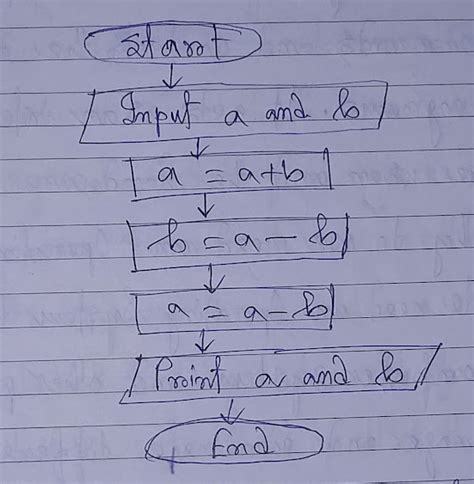 Start
Input a and b
a = a+b
b = a - b
a = a - b
Print a and b
End